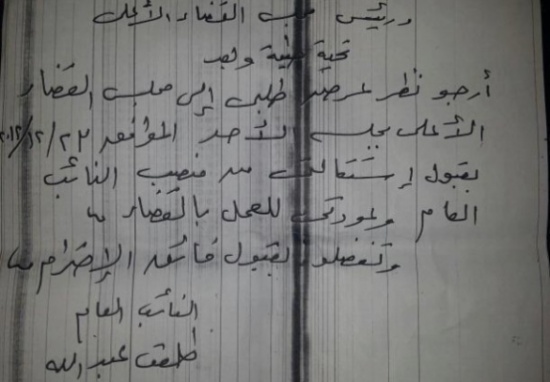 ورئيس مجلس القضاء الأعلى
تحية طيبة وبعد
أرجو نظر لعرض طلبى إلى مجلس القضاء
الأعلى بجلسة الأحد الموافق ٢٣/١٢/٢٠١٢
بقبول إستقالتى من منصب النائب
العام وعودتى للعمل بالقضاء
وتفضلوا بقبول فائق الإحترام
النائب العام
طلعت عبد الله